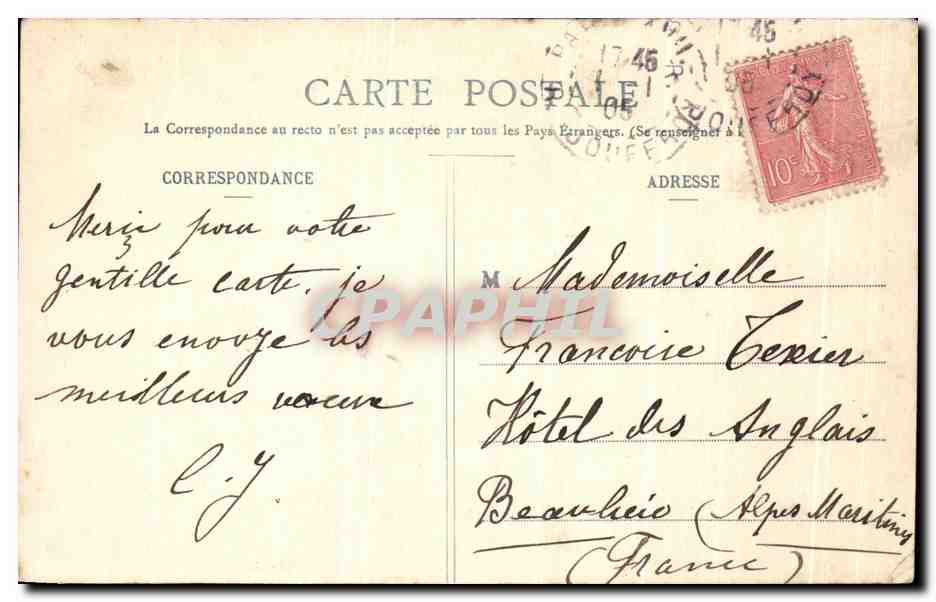 CARTE POSTALE
La Correspondance au recto n'est pas acceptée par tous les Pays Étrangers. (Se renseigner à
CORRESPONDANCE
Merci pour votre
gentille carte, je
vous envoye les
meilleurs voeux
C. J.
ADRESSE
M Mademoiselle
Francoise Texier
Hôtel des Anglais
Beaulieu (Alpes Maritimes
(France)
17 45
1 - 1
05
10c
CPAPHIL